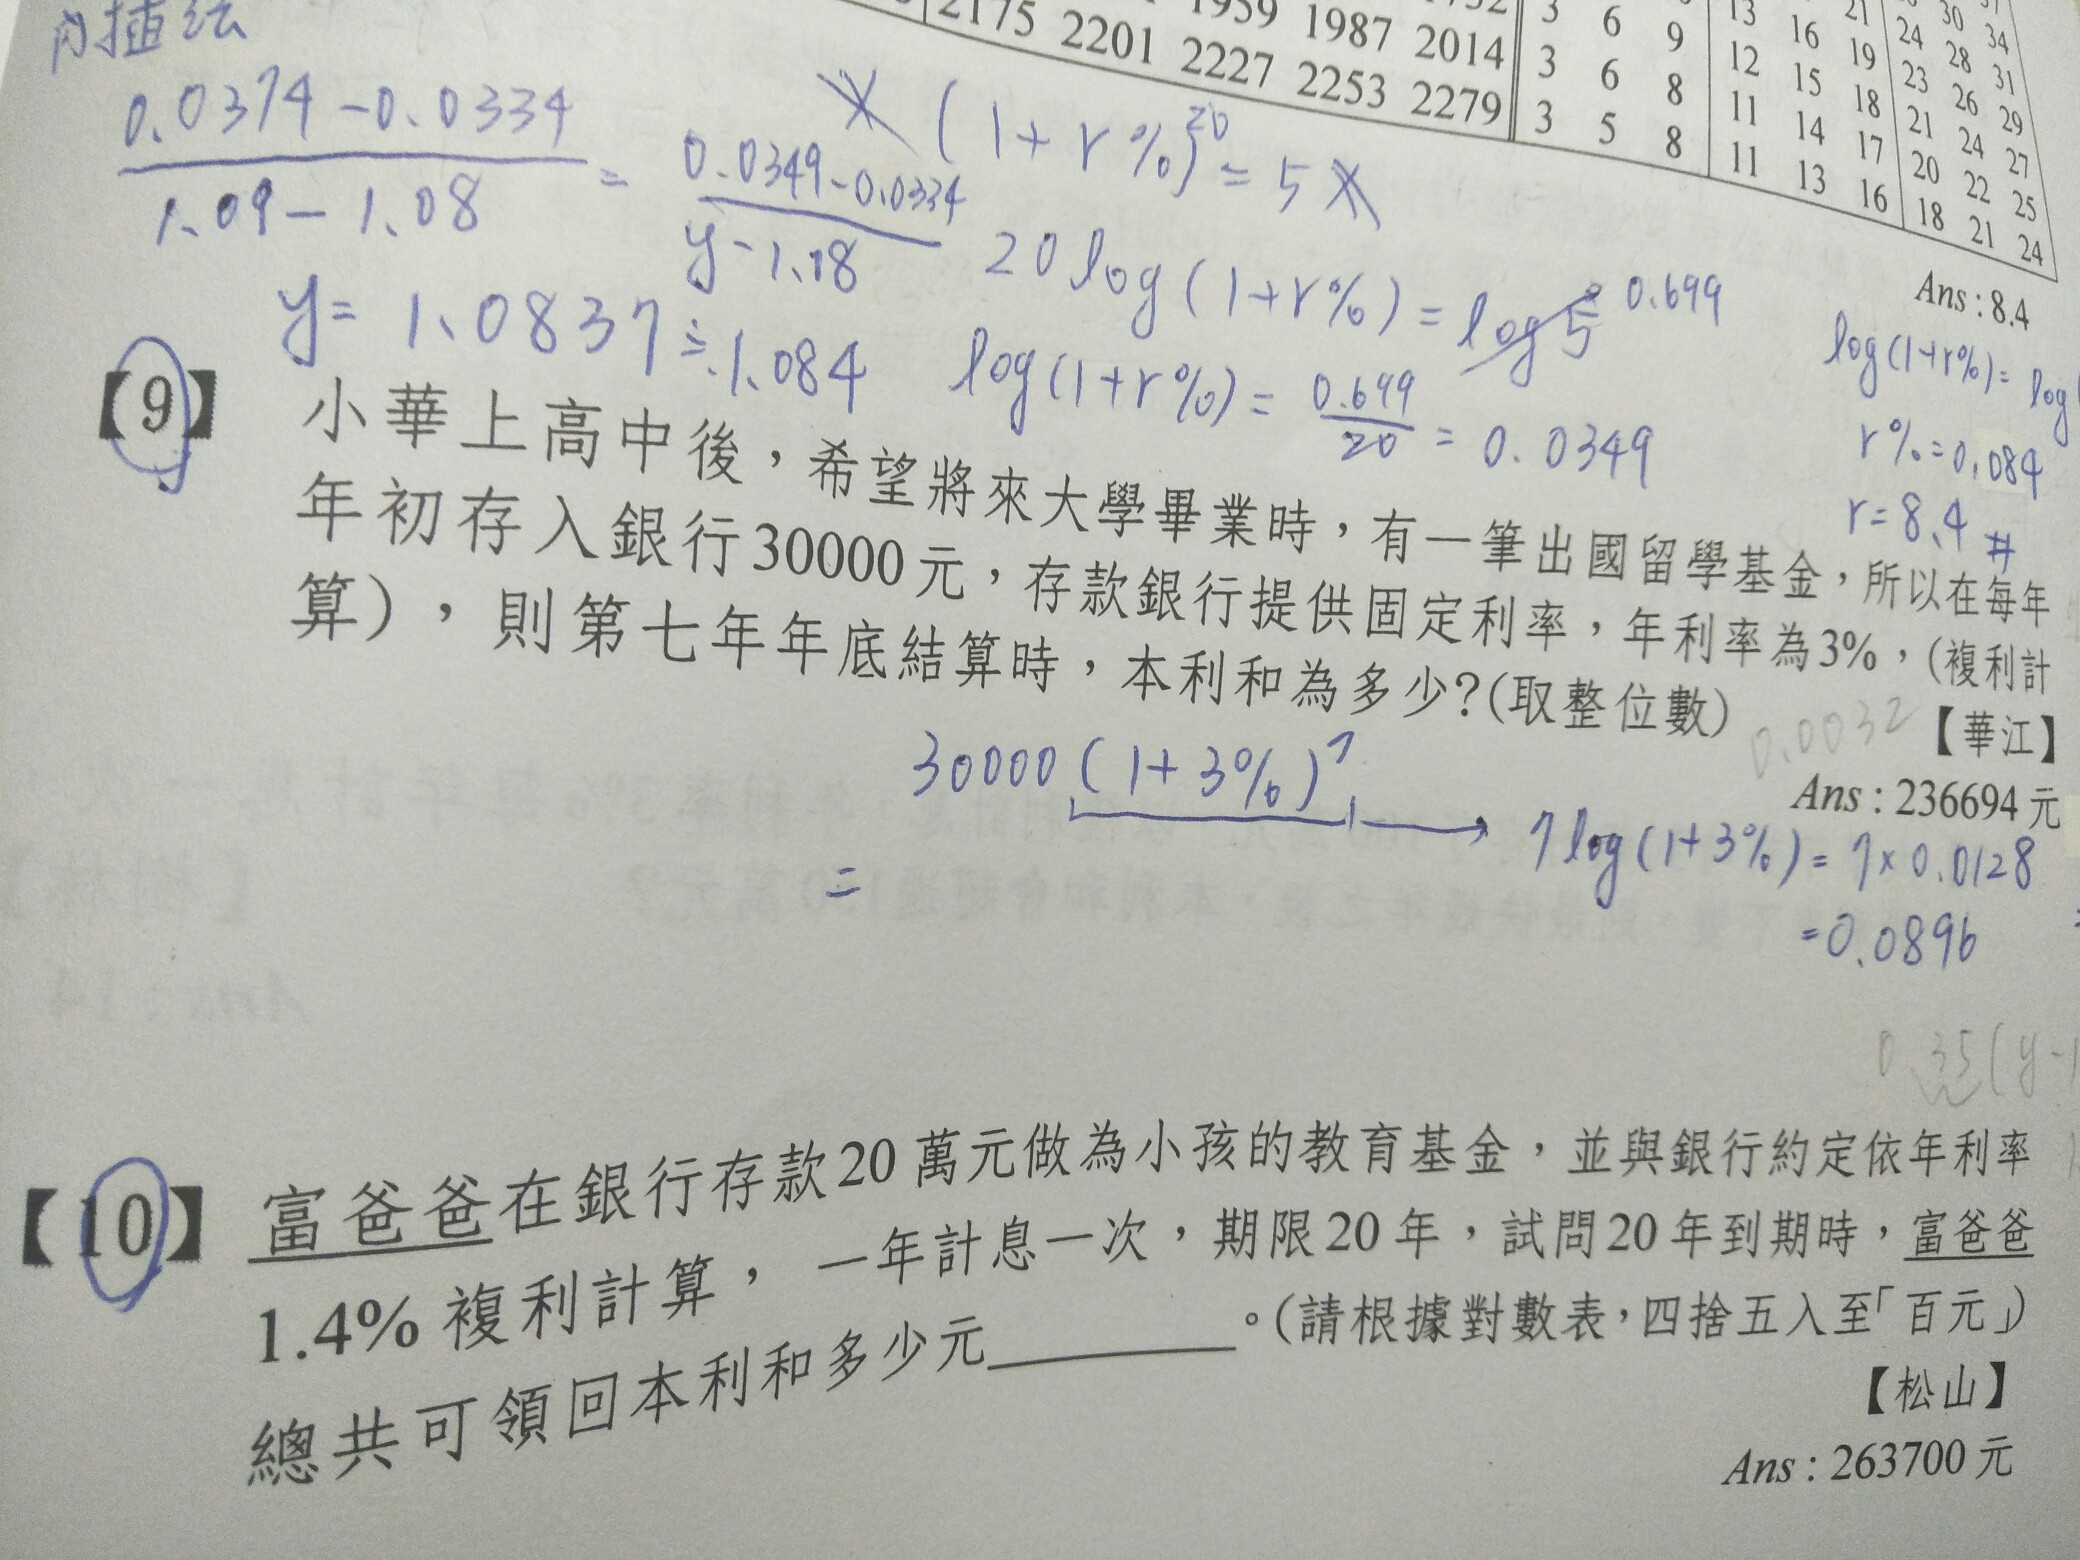 內插法
2175 2201 2227 2253 2279
1959 1987 2014
3 6 9
3 6 8
3 5 8
13 16 19
12 15 18
11 14 17
11 13 16
24 28 31
23 26 29
21 24 27
20 22 25
18 21 24
30 34
21
Ans : 8.4
0.0374 - 0.0334
1.09 - 1.08
=
0.0349 - 0.0334
y - 1.08
y = 1.0837 ≑ 1.084
x (1 + r%)^20 = 5x
20 log (1 + r%) = log 5 0.699
log (1 + r%) = 0.699 / 20 = 0.0349
log (1+r%) = log
r% = 0.084
r = 8.4 #
【9】 小華上高中後，希望將來大學畢業時，有一筆出國留學基金，所以在每年
年初存入銀行30000元，存款銀行提供固定利率，年利率為3%，(複利計
算)，則第七年年底結算時，本利和為多少?(取整位數)
【華江】
0.0032
Ans : 236694 元
30000 (1 + 3%)^7
→ 7 log (1 + 3%) = 7 × 0.0128
= 0.0896
=
0.35(y-1
【10】 富爸爸在銀行存款20萬元做為小孩的教育基金，並與銀行約定依年利率
1.4% 複利計算，一年計息一次，期限20年，試問20年到期時，富爸爸
總共可領回本利和多少元________。(請根據對數表，四捨五入至「百元」)
【松山】
Ans : 263700 元